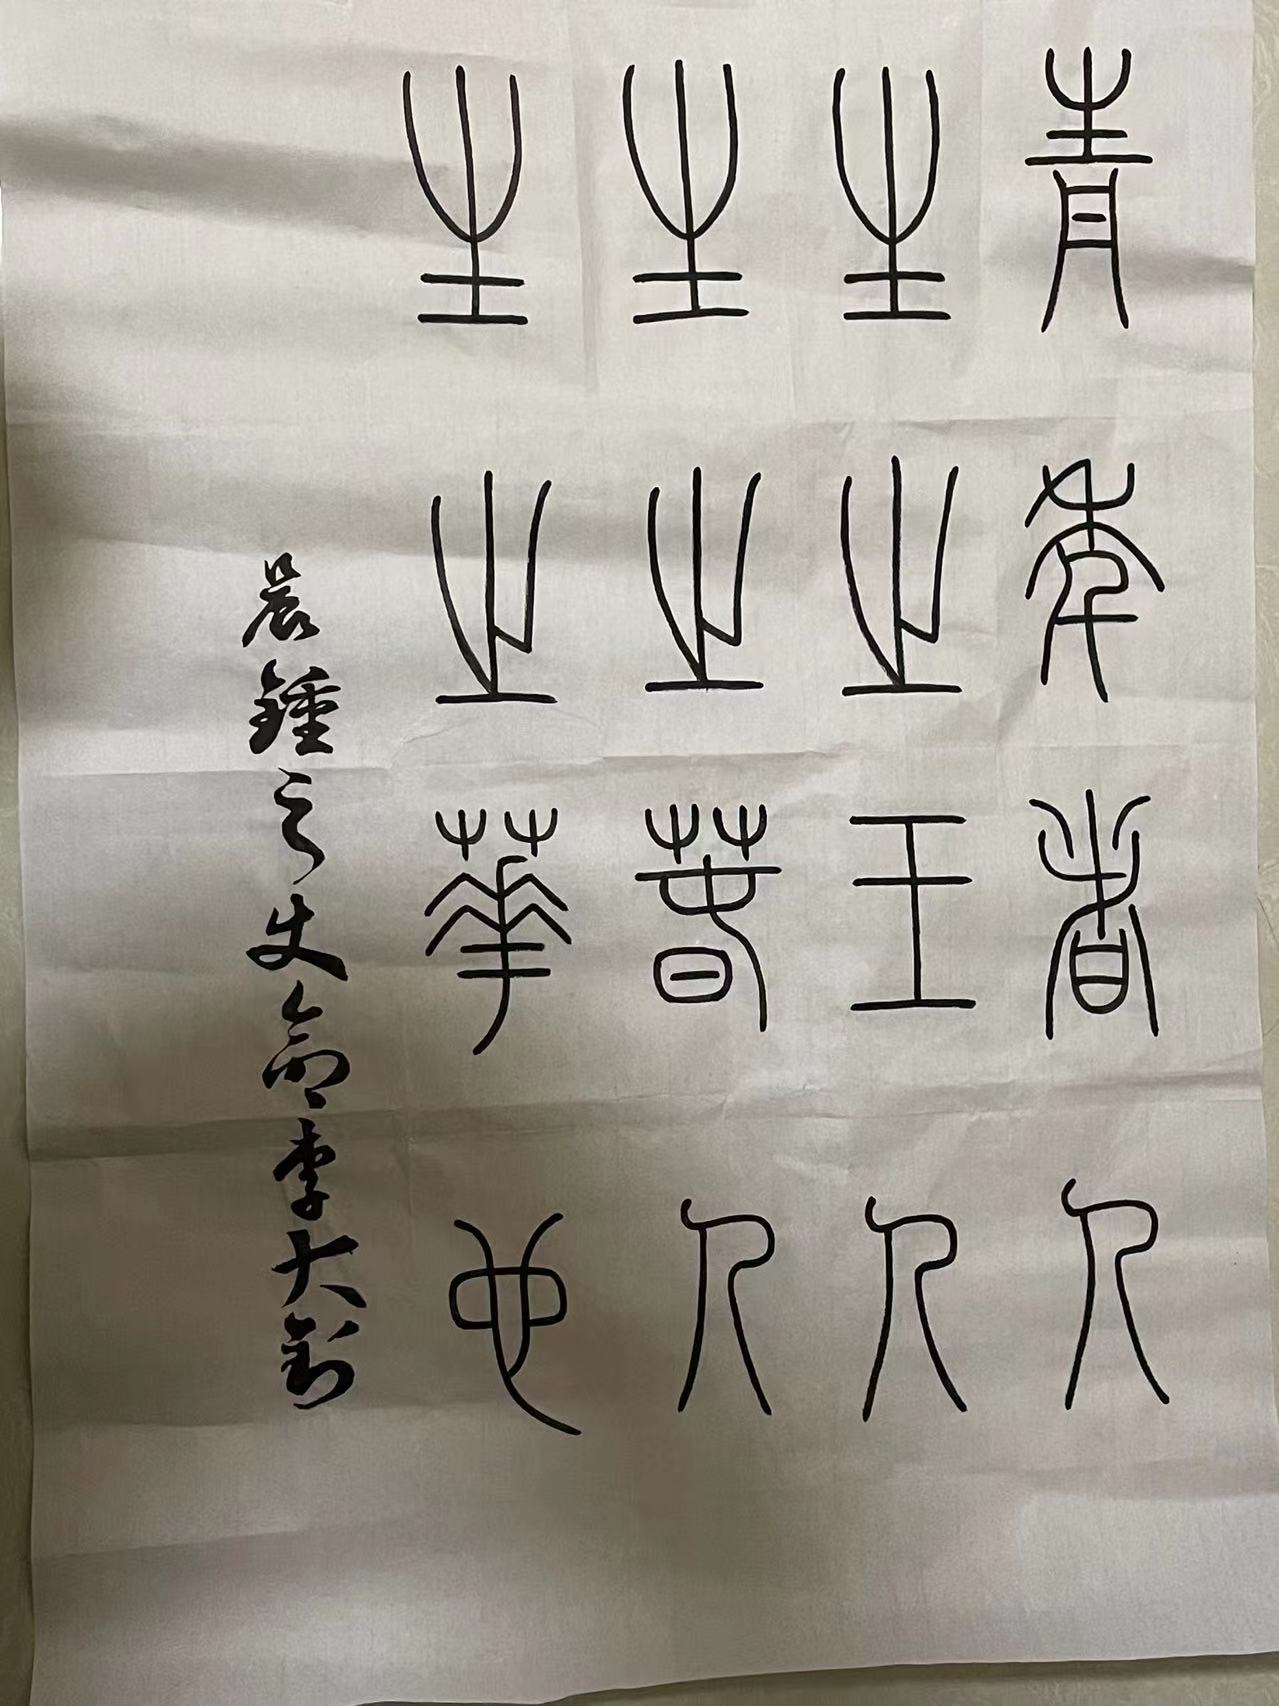 青年者人
生之王人
生之春人
生之華也
晨鍾之使命李大釗